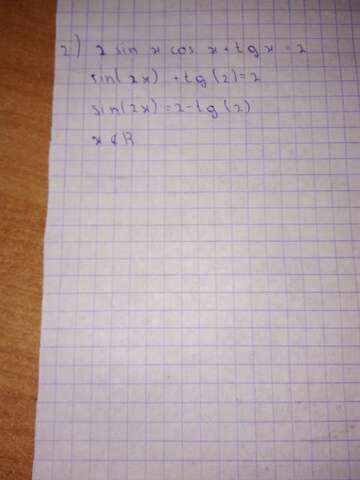 2) 2 sin x cos x + tg x = 2
sin(2x) + tg(2) = 2
sin(2x) = 2 - tg(2)
x ∉ R